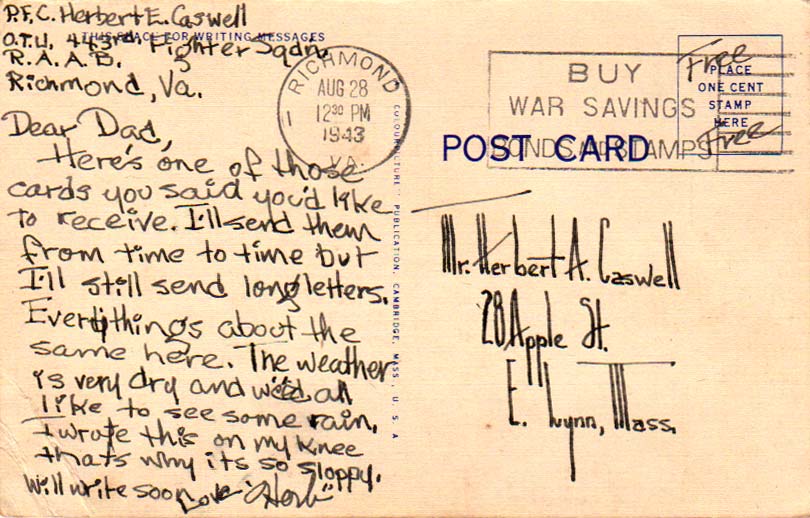 P.F.C. Herbert E. Caswell
THIS SPACE FOR WRITING MESSAGES
O.T.U. 443rd Fighter Sqdn.
R.A.A.B.
Richmond, Va.
Dear Dad,
Here's one of those
cards you said you'd like
to receive. I'll send them
from time to time but
I'll still send long letters.
Everythings about the
same here. The weather
is very dry and we'd all
like to see some rain.
I wrote this on my knee
thats why its so sloppy.
Will write soon Love "Herb"
RICHMOND
1
AUG 28
1230 PM
1943
VA.
BUY
WAR SAVINGS
BONDS AND STAMPS
Free
PLACE
ONE CENT
STAMP
HERE
Free
POST CARD
PUBLICATION, CAMBRIDGE, MASS., U. S. A
Mr. Herbert A. Caswell
28 Apple St.
E. Lynn, Mass.